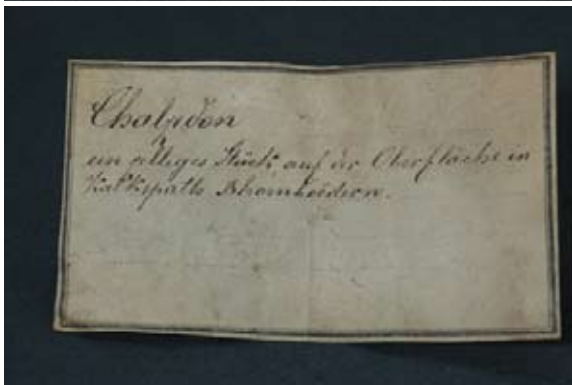 Chalzedon
ein Stück auf der Oberfläche in
Kalkspath Rhomboëdern.